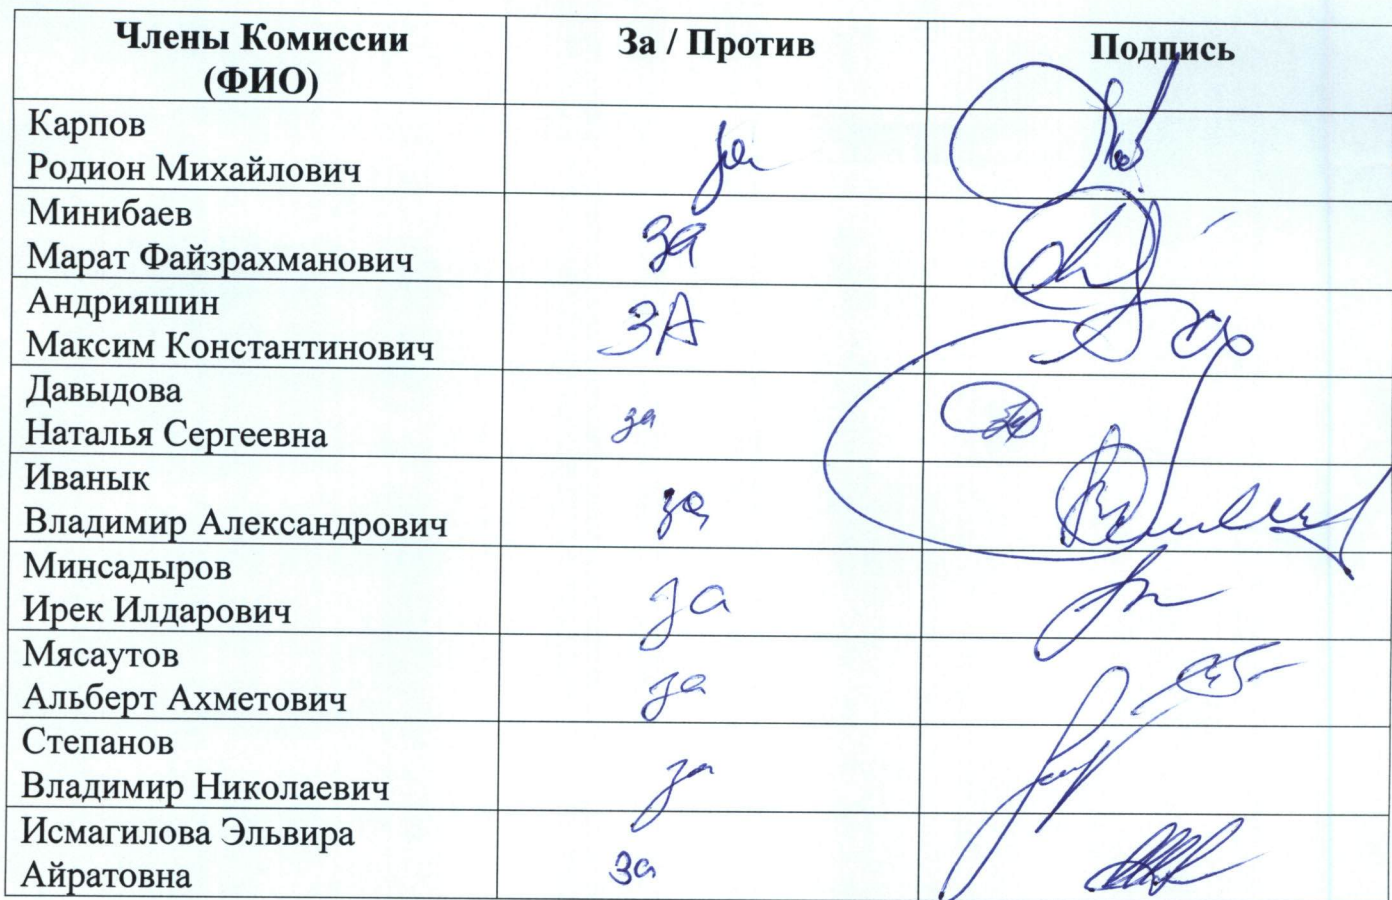 Члены Комиссии
(ФИО)
За / Против
Подпись
Карпов
Родион Михайлович
за
Минибаев
Марат Файзрахманович
за
Андрияшин
Максим Константинович
ЗА
Давыдова
Наталья Сергеевна
за
Иванык
Владимир Александрович
за
Минсадыров
Ирек Илдарович
за
Мясаутов
Альберт Ахметович
за
Степанов
Владимир Николаевич
за
Исмагилова Эльвира
Айратовна
за